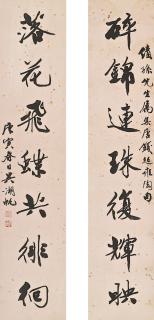 碎錦連珠復輝映
孫先生屬集唐錢起雍陶句
落花飛蝶共徘徊
庚寅春日吳湖帆